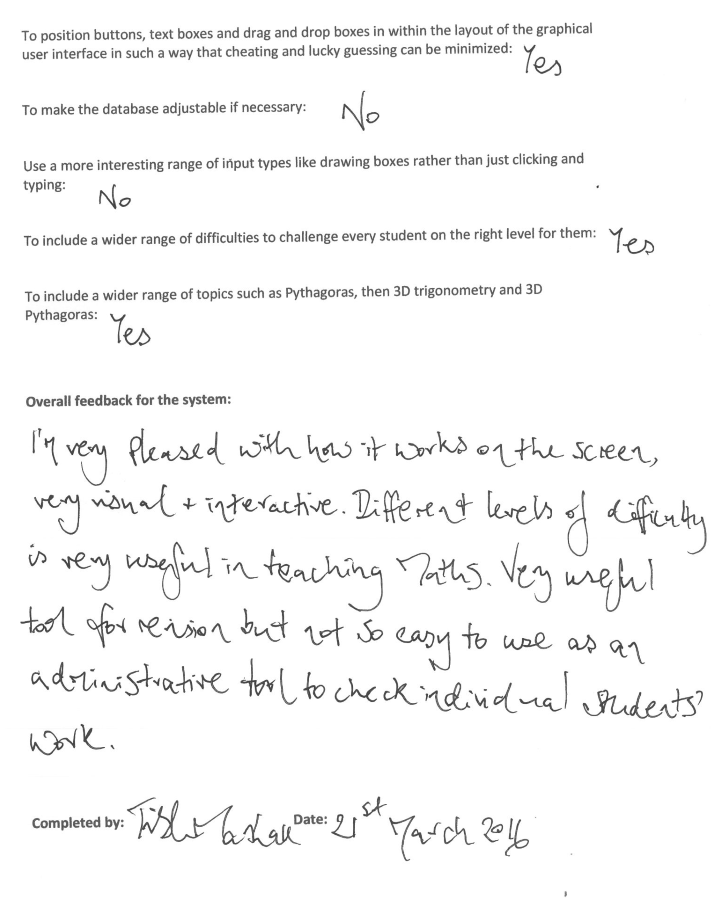 To position buttons, text boxes and drag and drop boxes in within the layout of the graphical
user interface in such a way that cheating and lucky guessing can be minimized: Yes
To make the database adjustable if necessary: No
Use a more interesting range of input types like drawing boxes rather than just clicking and
typing: No
To include a wider range of difficulties to challenge every student on the right level for them: Yes
To include a wider range of topics such as Pythagoras, then 3D trigonometry and 3D
Pythagoras: Yes
Overall feedback for the system:
I'm very pleased with how it works on the screen,
very visual + interactive. Different levels of difficulty
is very useful in teaching Maths. Very useful
tool for revision but not so easy to use as an
administrative tool to check individual students'
work.
Completed by: Date: 21st March 2016